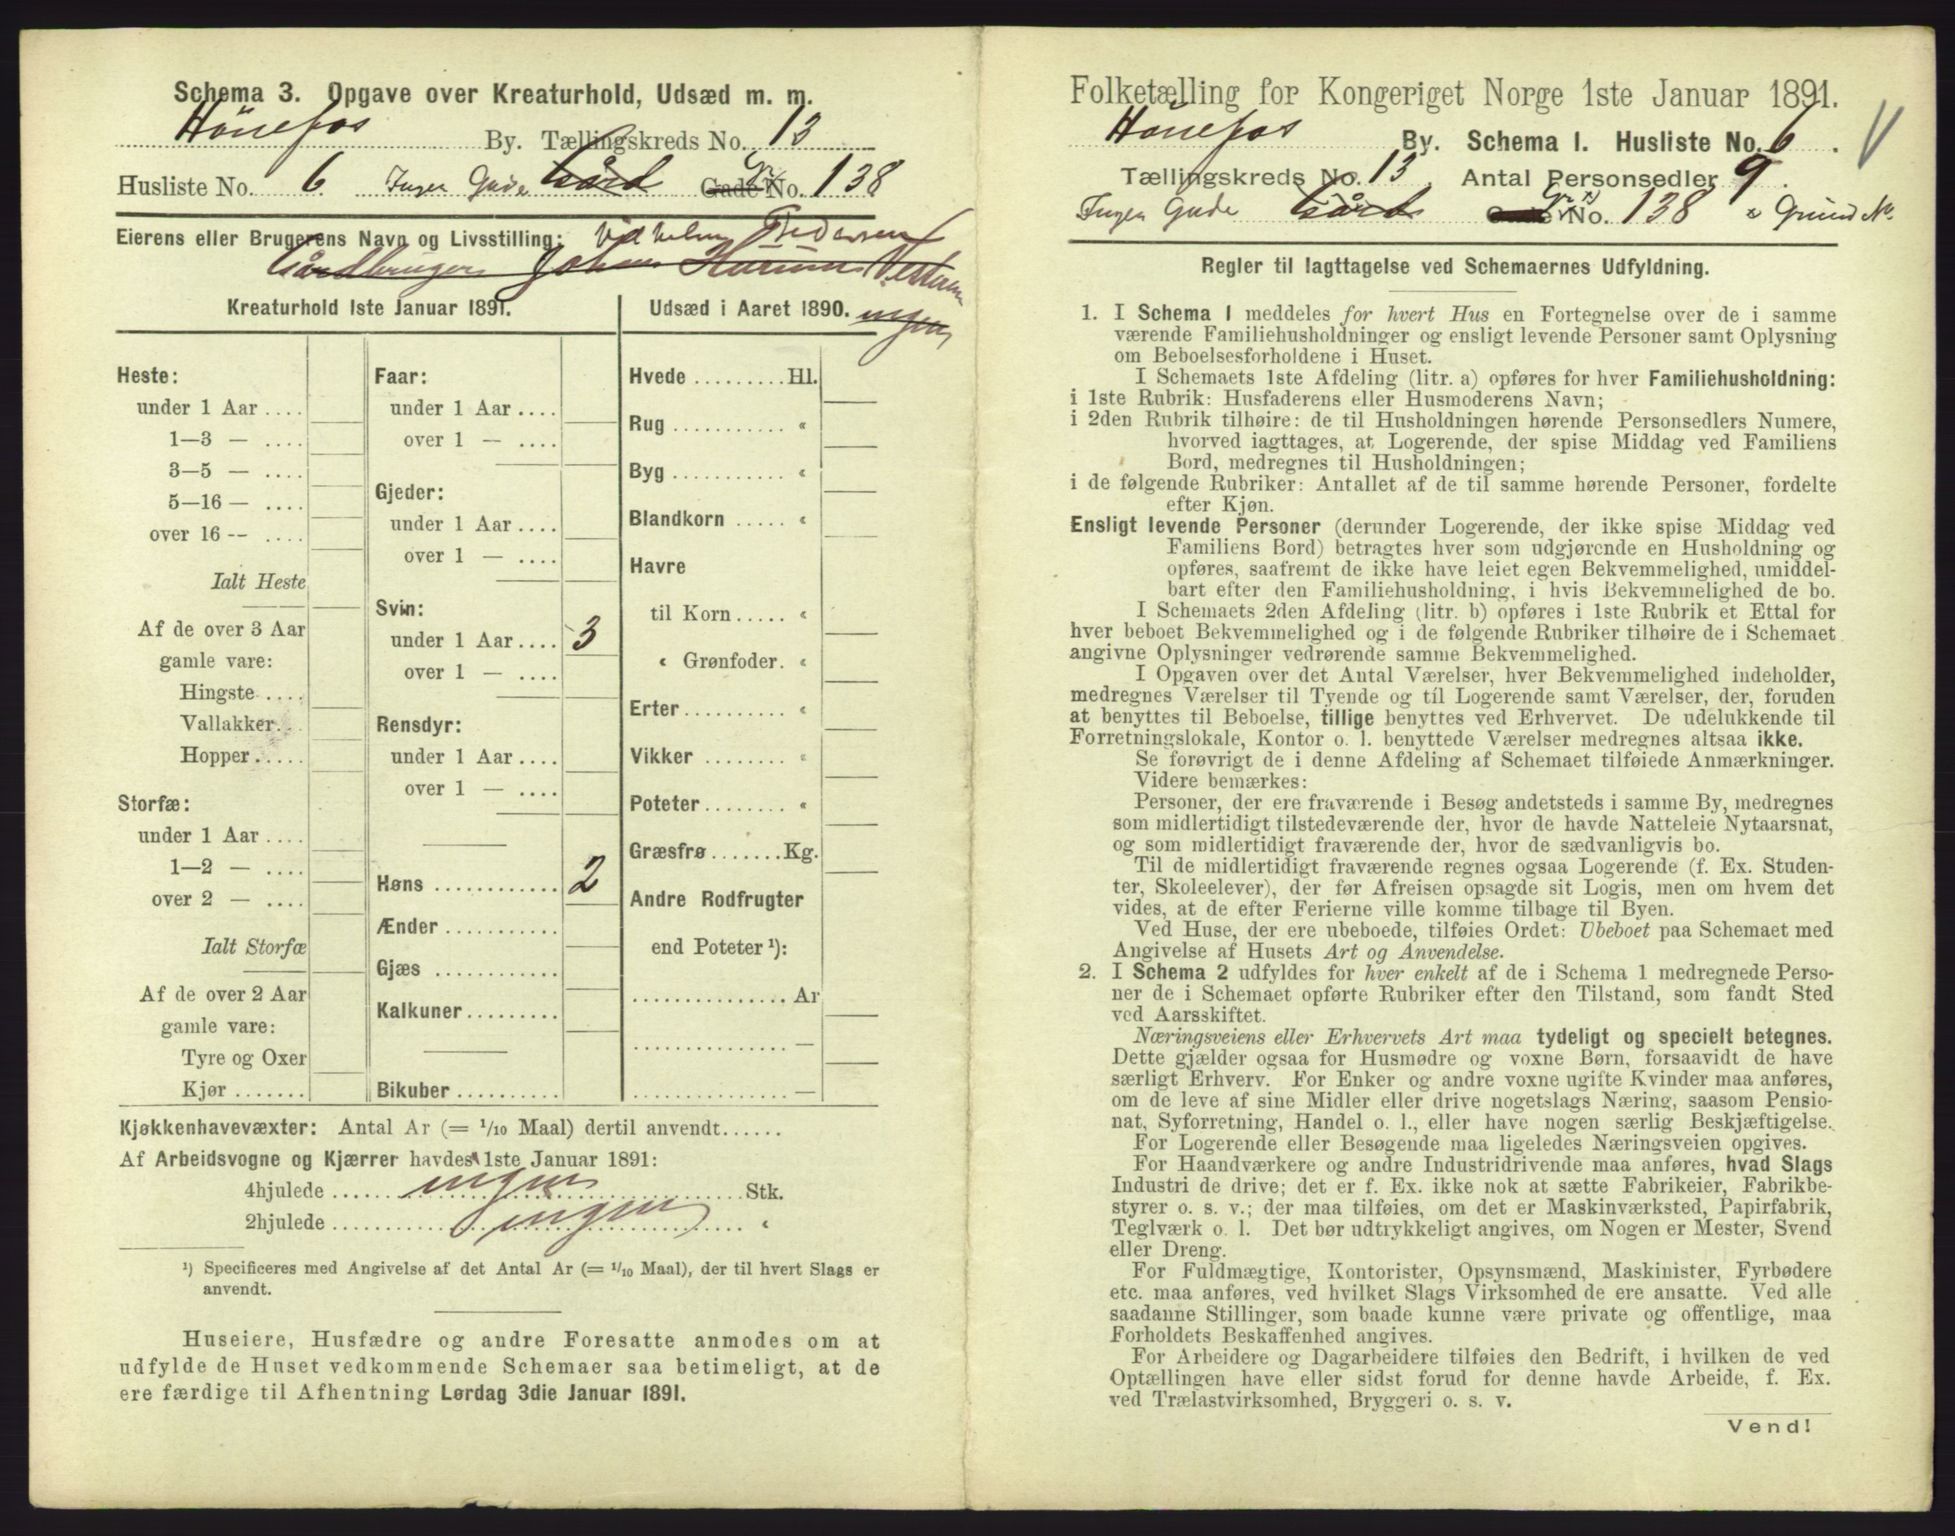 Schema 3. Opgave over Kreaturhold, Udsæd m. m.
Hönefos By. Tællingskreds No. 13
Husliste No. 6 Ingen Gade Gård Gade No. 138
Eierens eller Brugerens Navn og Livsstilling: Vilhelm Pedersen
Gårdbruger Johan
Kreaturhold 1ste Januar 1891.
Udsæd i Aaret 1890. ingen
Heste:
under 1 Aar ....
1—3 — ....
3—5 — ....
5—16 — ....
over 16 -- ....
Ialt Heste
Af de over 3 Aar
gamle vare:
Hingste ....
Vallakker...
Hopper .....
Storfæ:
under 1 Aar ....
1—2 — ....
over 2 — ....
Ialt Storfæ
Af de over 2 Aar
gamle vare:
Tyre og Oxer
Kjør .......
Faar:
under 1 Aar ....
over 1 — ....
Gjeder:
under 1 Aar ....
over 1 — ....
Svin:
under 1 Aar .... 3
over 1 — ....
Rensdyr:
under 1 Aar ....
over 1 — ....
Høns ............ 2
Ænder ...........
Gjæs ............
Kalkuner.........
Bikuber ..........
Hvede ......... Hl.
Rug ........... «
Byg ........... «
Blandkorn ..... «
Havre
til Korn ..... «
« Grønfoder. «
Erter.......... «
Vikker ........ «
Poteter........ «
Græsfrø ....... Kg.
Andre Rodfrugter
end Poteter ¹):
............... Ar
............... —
............... —
Kjøkkenhavevæxter: Antal Ar (= 1/10 Maal) dertil anvendt......
Af Arbeidsvogne og Kjærrer havdes 1ste Januar 1891:
4hjulede ... ingen ... Stk.
2hjulede ... ingen ... «
¹) Specificeres med Angivelse af det Antal Ar (= 1/10 Maal), der til hvert Slags er
anvendt.
Huseiere, Husfædre og andre Foresatte anmodes om at
udfylde de Huset vedkommende Schemaer saa betimeligt, at de
ere færdige til Afhentning Lørdag 3die Januar 1891.
Folketælling for Kongeriget Norge 1ste Januar 1891.
Hönefos By. Schema I. Husliste No. 6.
Tællingskreds No. 13 Antal Personsedler 9.
Ingen Gade Gård No. 138 Grund No.
Regler til Iagttagelse ved Schemaernes Udfyldning.
1. I Schema I meddeles for hvert Hus en Fortegnelse over de i samme
værende Familiehusholdninger og ensligt levende Personer samt Oplysning
om Beboelsesforholdene i Huset.
I Schemaets 1ste Afdeling (litr. a) opføres for hver Familiehusholdning:
i 1ste Rubrik: Husfaderens eller Husmoderens Navn;
i 2den Rubrik tilhøire: de til Husholdningen hørende Personsedlers Numere,
hvorved iagttages, at Logerende, der spise Middag ved Familiens
Bord, medregnes til Husholdningen;
i de følgende Rubriker: Antallet af de til samme hørende Personer, fordelte
efter Kjøn.
Ensligt levende Personer (derunder Logerende, der ikke spise Middag ved
Familiens Bord) betragtes hver som udgjørende en Husholdning og
opføres, saafremt de ikke have leiet egen Bekvemmelighed, umiddel-
bart efter den Familiehusholdning, i hvis Bekvemmelighed de bo.
I Schemaets 2den Afdeling (litr. b) opføres i 1ste Rubrik et Ettal for
hver beboet Bekvemmelighed og i de følgende Rubriker tilhøire de i Schemaet
angivne Oplysninger vedrørende samme Bekvemmelighed.
I Opgaven over det Antal Værelser, hver Bekvemmelighed indeholder,
medregnes Værelser til Tyende og til Logerende samt Værelser, der, foruden
at benyttes til Beboelse, tillige benyttes ved Erhvervet. De udelukkende til
Forretningslokale, Kontor o. l. benyttede Værelser medregnes altsaa ikke.
Se forøvrigt de i denne Afdeling af Schemaet tilføiede Anmærkninger.
Videre bemærkes:
Personer, der ere fraværende i Besøg andetsteds i samme By, medregnes
som midlertidigt tilstedeværende der, hvor de havde Natteleie Nytaarsnat,
og som midlertidigt fraværende der, hvor de sædvanligvis bo.
Til de midlertidigt fraværende regnes ogsaa Logerende (f. Ex. Studen-
ter, Skoleelever), der før Afreisen opsagde sit Logis, men om hvem det
vides, at de efter Ferierne ville komme tilbage til Byen.
Ved Huse, der ere ubeboede, tilføies Ordet: Ubeboet paa Schemaet med
Angivelse af Husets Art og Anvendelse.
2. I Schema 2 udfyldes for hver enkelt af de i Schema 1 medregnede Perso-
ner de i Schemaet opførte Rubriker efter den Tilstand, som fandt Sted
ved Aarsskiftet.
Næringsveiens eller Erhvervets Art maa tydeligt og specielt betegnes.
Dette gjælder ogsaa for Husmødre og voxne Børn, forsaavidt de have
særligt Erhverv. For Enker og andre voxne ugifte Kvinder maa anføres,
om de leve af sine Midler eller drive nogetslags Næring, saasom Pensio-
nat, Syforretning, Handel o. l., eller have nogen særlig Beskjæftigelse.
For Logerende eller Besøgende maa ligeledes Næringsveien opgives.
For Haandværkere og andre Industridrivende maa anføres, hvad Slags
Industri de drive; det er f. Ex. ikke nok at sætte Fabrikeier, Fabrikbe-
styrer o. s. v.; der maa tilføies, om det er Maskinværksted, Papirfabrik,
Teglværk o. l. Det bør udtrykkeligt angives, om Nogen er Mester, Svend
eller Dreng.
For Fuldmægtige, Kontorister, Opsynsmænd, Maskinister, Fyrbødere
etc. maa anføres, ved hvilket Slags Virksomhed de ere ansatte. Ved alle
saadanne Stillinger, som baade kunne være private og offentlige, maa
Forholdets Beskaffenhed angives.
For Arbeidere og Dagarbeidere tilføies den Bedrift, i hvilken de ved
Optællingen have eller sidst forud for denne havde Arbeide, f. Ex.
ved Trælastvirksomhed, Bryggeri o. s. v.
Vend!